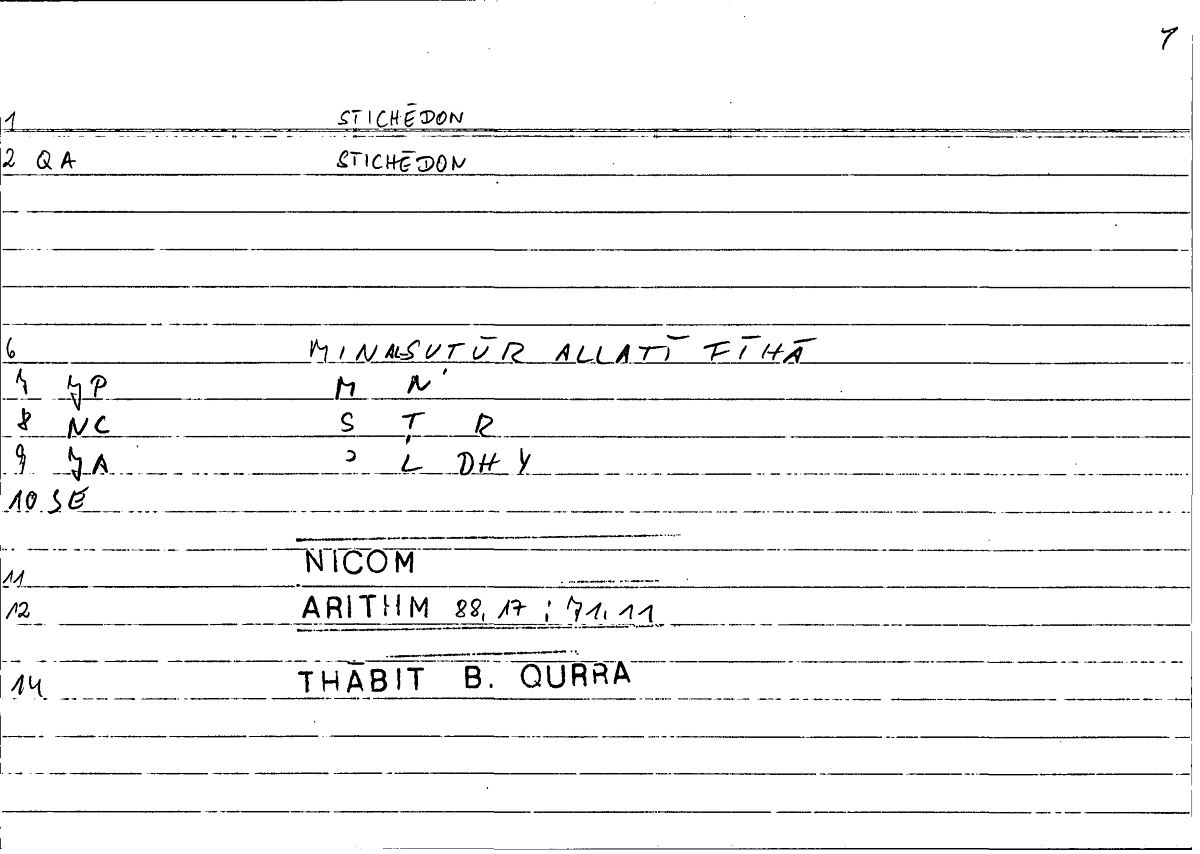 1
1 STICHĒDON
2 QA STICHĒDON
6 MIN AL-SUTŪR ALLATĪ FĪHĀ
7 JP M N
8 NC S T R
9 JA ʾ L DH Y
10 SE
11 NICOM
12 ARITHM 88,17 ; 71,11
14 THĀBIT B. QURRA